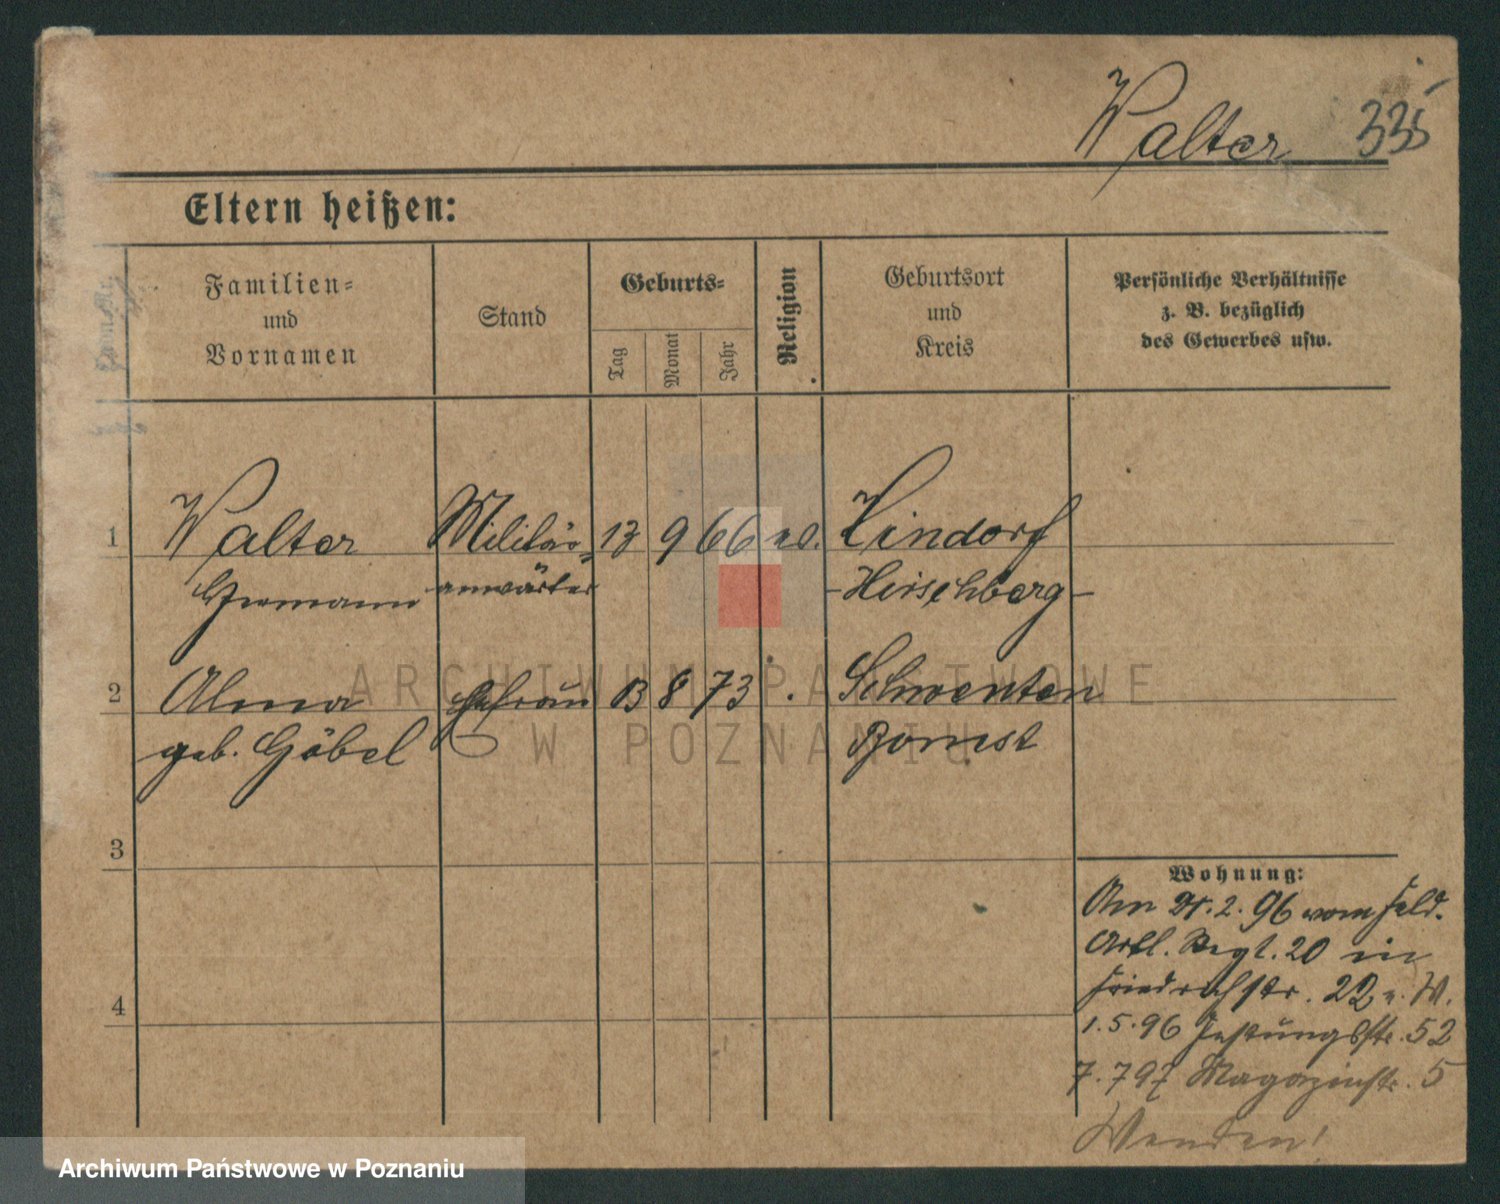 Walter 335
Eltern heißen:
Familien-
und
Vornamen
Stand
Geburts-
Tag
Monat
Jahr
Religion
Geburtsort
und
Kreis
Persönliche Verhältnisse
z. B. bezüglich
des Gewerbes usw.
1 Walter Militär- 13 9 66 Lindorf
Hermann anwärter Hirschberg
2 Alma Ehefrau 13 8 73 Schwenten
geb. Göbel Bomst
3
4
Wohnung:
Am 21.2.96 vom Feld.
Artl. Regt. 20 in
Friedrichstr. 22 W.
1.5.96 Festungsstr. 52
7.7 97 Magazinstr. 5
Wenden!
ARCHIWUM PAŃSTWOWE
W POZNANIU
Archiwum Państwowe w Poznaniu